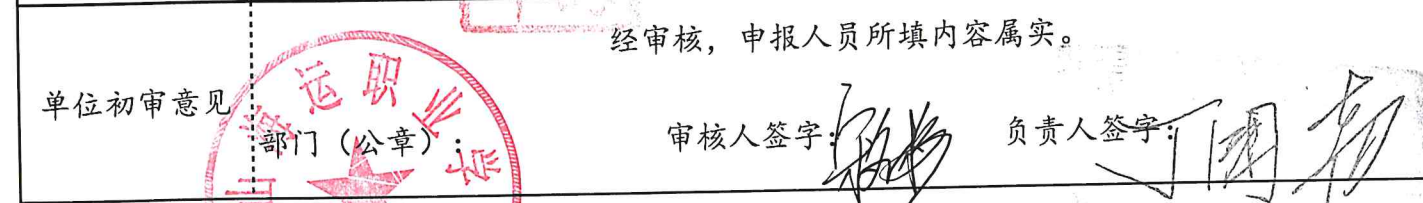 经审核，申报人员所填内容属实。
单位初审意见
部门（公章）：
审核人签字：
负责人签字：丁国
海运职业学